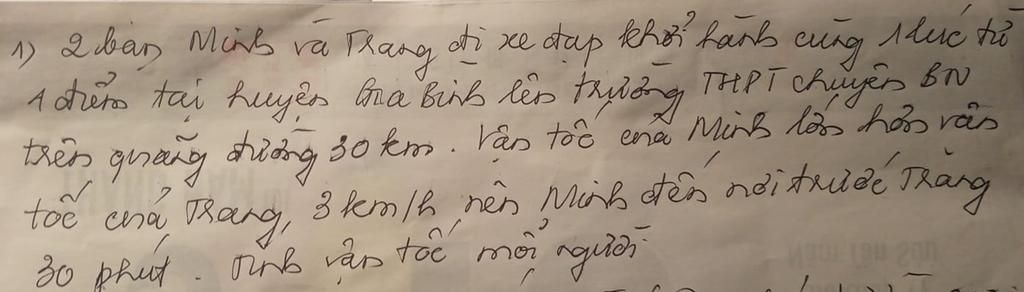 1) 2 bạn Minh và Trang đi xe đạp khởi hành cùng 1 lúc từ
1 điểm tại huyện Gia Bình lên trường THPT chuyên BN
trên quãng đường 30 km. Vận tốc của Minh lớn hơn vận
tốc của Trang, 3 km/h nên Minh đến nơi trước Trang
30 phút. Tính vận tốc mỗi người.